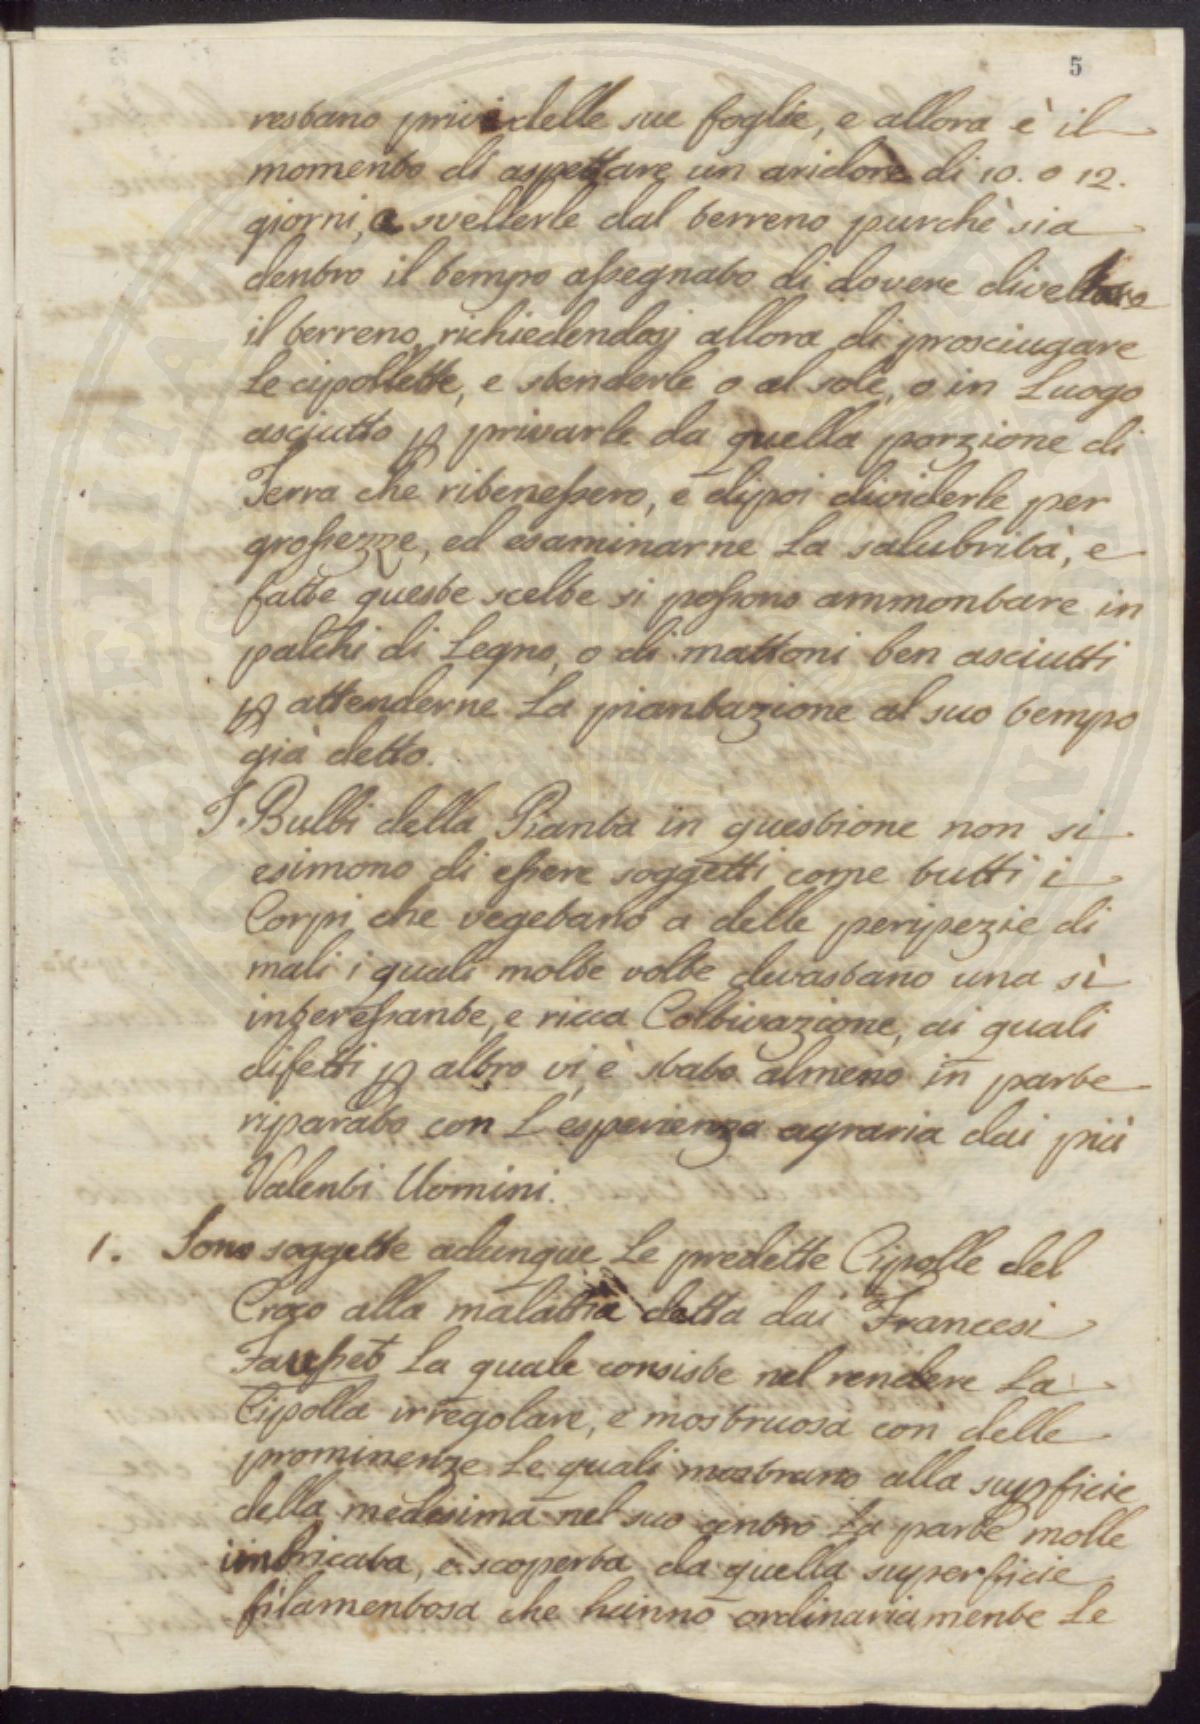 5
restano privi delle sue foglie, e allora è il
momento di aspettare un aridore di 10. o 12.
giorni, e svellerle dal terreno purchè sia
dentro il tempo assegnato di dovere
il terreno, richiedendosi allora di prosciugare
Le cipollette, e stenderle o al sole, o in Luogo
asciutto ꝑ privarle da quella porzione di
Terra che ritenessero, e dipoi dividerle per
grossezze, ed esaminarne La salubrità, e
fatte queste scelte si possono ammontare in
palchi di Legno, o di mattoni ben asciutti
ꝑ attenderne La piantazione al suo tempo
già detto.
I Bulbi della Pianta in questione non si
esimono di essere soggetti come tutti i
Corpi che vegetano a delle peripezie di
mali i quali molte volte devastano una sì
interessante, e ricca Coltivazione, ai quali
difetti ꝑ altro vi è stato almeno in parte
riparato con L'esperienza agraria dai più
Valenti Uomini.
1. Sono soggette adunque Le predette Cipolle del
Croco alla malattia detta dai Francesi
Fausset La quale consiste nel rendere La
Cipolla irregolare, e mostruosa con delle
prominenze Le quali mostrano alla supficie
della medesima nel suo centro La parte molle
imbricata, e scoperta da quella superficie
filamentosa che hanno ordinariamente Le